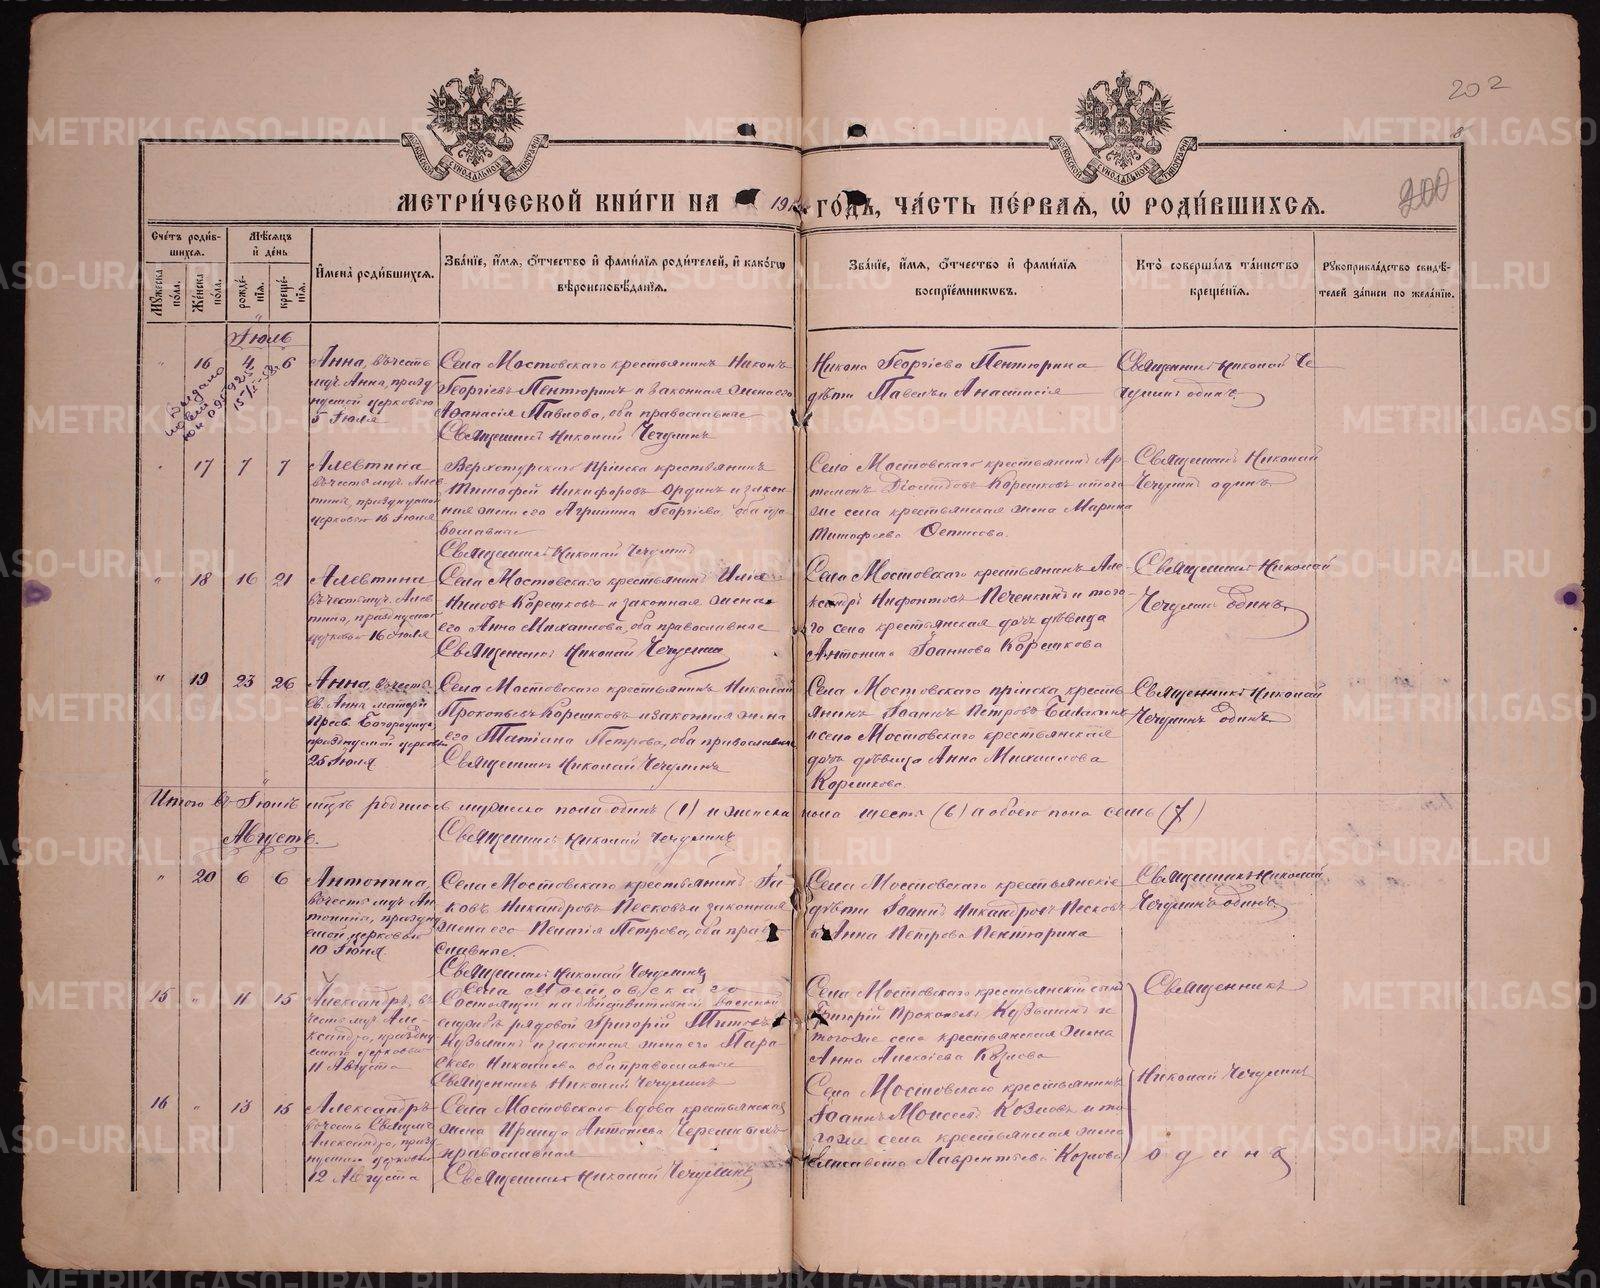 202
8
200
МОСКОВСКОЙ СѴНОДАЛЬНОЙ ТИПОГРАФІИ
МОСКОВСКОЙ СѴНОДАЛЬНОЙ ТИПОГРАФІИ
МЕТРИ́ЧЕСКОЙ КНИ́ГИ НА 191 ГО́ДЪ, ЧА́СТЬ ПЕ́РВАѦ, Ѡ҆ РОДИ́ВШИХСѦ.
Сче́тъ роди́в-
шихсѧ.
Мꙋ́жеска по́ла.
Же́нска по́ла.
Мѣ́сѧцъ
и҆ де́нь
рожде́-
нїѧ.
креще́-
нїѧ.
И҆мена̀ роди́вшихсѧ.
Зва́нїе, и҆́мѧ, ѻ҆́тчество и҆ фами́лїѧ роди́телей, и҆ како́гѡ
вѣроисповѣ́данїѧ.
Зва́нїе, и҆́мѧ, ѻ҆́тчество и҆ фами́лїѧ
воспрїе́мникѡвъ.
Кто̀ соверша́лъ та́инство
креще́нїѧ.
Рꙋкоприкла́дство свидѣ́-
телей за́писи по жела́нїю.
Іюль
" 16 4 6
Анна, въ честь
мц. Анны, празд
нуемой церковью
5 Іюля
Села Мостовскаго крестьянинъ Никонъ
Георгіевъ Пентюринъ и законная жена его
Афанасія Павлова, оба православные
Священникъ Николай Чечулинъ
Никона Георгіева Пентюрина
дѣти Павелъ и Анастасія
Священникъ Николай Че
чулинъ одинъ
Выдано
" 17 7 7
Алевтина
въ честь мц. Алев
тины, празднуемой
церковью 16 Іюля
Верхотурскаго Пріиска крестьянинъ
Тимофей Никифоровъ Ординъ и закон
ная жена его Агрипина Георгіева, оба пра
вославные
Священникъ Николай Чечулинъ
Села Мостовскаго крестьянинъ Ар-
темонъ Діомидовъ Корешковъ и того
же села крестьянская жена Марина
Тимофеева
Священникъ Николай
Чечулинъ одинъ
" 18 16 21
Алевтина
въ честь мц. Алев
тины, празднуемой
церковью 16 Іюля
Села Мостовскаго крестьянинъ Илія
Корешковъ и законная жена
его Анна Михаилова, оба православные
Священникъ Николай Чечулинъ
Села Мостовскаго крестьянинъ Але-
ксандръ Нифонтовъ Печенкинъ и того-
го села крестьянская дочь дѣвица
Антонина Іоаннова Корешкова
Священникъ Николай
Чечулинъ Одинъ.
" 19 23 26
Анна, въ честь
Св. Анны матери
Пресв. Богородицы
празднуемой церковью
25 Іюля
Села Мостовскаго крестьянинъ Николай
Прокопьевъ Корешковъ и законная жена
его Татіана Петрова, оба православные
Священникъ Николай Чечулинъ
Села Мостовскаго пріиска кресть
янинъ Іоаннъ Петровъ Балакинъ
и села Мостовскаго крестьянская
дочь дѣвица Анна Михаилова
Корешкова
Священникъ Николай
Чечулинъ Одинъ
Итого въ Іюлѣ мцѣ родилось мужеска пола одинъ (1) и женска пола шесть (6) а обоего пола семь (7)
Священникъ Николай Чечулинъ
Августъ.
" 20 6 6
Антонина,
въ честь мц. Ан
тонины, праздну
емой церковью
10 Іюня
Села Мостовскаго крестьянинъ Іа
ковъ Никандровъ Песковъ и законная
жена его Пелагія Петрова, оба право
славные.
Священникъ Николай Чечулинъ
Села Мостовскаго крестьянскіе
дѣти Іоаннъ Никандровъ Песковъ
и Анна Петрова Пентюрина
Священникъ Николай
Чечулинъ одинъ
15 " 11 15
Александръ, въ
честь мц. Але-
ксандра, праздну
емаго церковью
11 Августа
Села Мостовскаго
Состоящій на дѣйствительной военной
службѣ рядовой Григорій Титовъ
Кузьминъ и законная жена его Пара
скева Николаева оба православные
Священникъ Николай Чечулинъ
Села Мостовскаго крестьянскій сынъ
Григорій Прокопьевъ Кузьминъ и
того же села крестьянская жена
Анна Алексіева Козлова
Священникъ
16 " 13 15
Александръ
въ честь Священном.
Александра, празд
нуемаго церковью
12 Августа
Села Мостовскаго вдова крестьянская
жена Ираида Антоніева Черемныхъ
православная
Священникъ Николай Чечулинъ
Села Мостовскаго крестьянинъ
Іоаннъ Моисеевъ Козловъ и то
го же села крестьянская жена
Елисавета Лаврентьева Козлова
Николай Чечулинъ
одинъ
METRIKI.GASO-URAL.RU